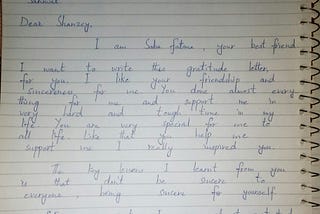 Dear Shanzey,
I am Saba Fatima, your best friend
I want to write this gratitude letter
for you. I like your friendship and
sincereness for me. You done almost every
thing for me and support me in
very hard and tough time in my
life. You are very special for me to
all life. Like that you help me
support me I really inspired you.
The key lesson I learnt from you
is that don't be sincere to
everyone, being sincere for yourself